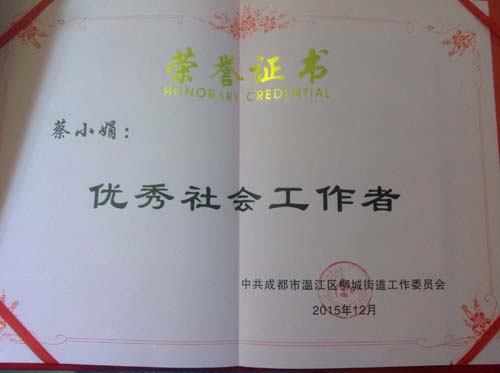 荣誉证书
HONORARY CREDENTIAL
蔡小娟：
优秀社会工作者
中共成都市温江区柳城街道工作委员会
2015年12月